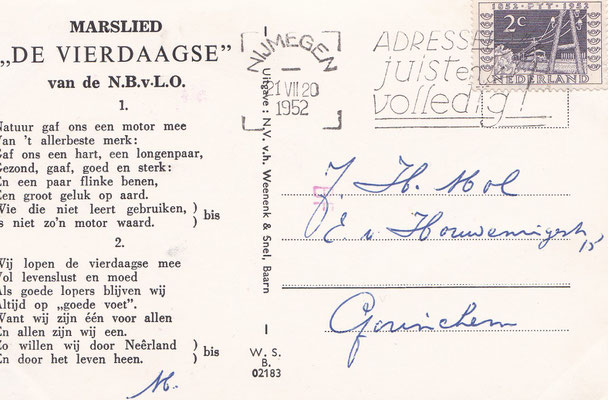 MARSLIED
„DE VIERDAAGSE”
van de N.B.v.L.O.
1.
Natuur gaf ons een motor mee
Van 't allerbeste merk:
Gaf ons een hart, een longenpaar,
Gezond, gaaf, goed en sterk:
En een paar flinke benen,
Een groot geluk op aard.
Wie die niet leert gebruiken, )
Is niet zo'n motor waard. ) bis
2.
Wij lopen de vierdaagse mee
Vol levenslust en moed
Als goede lopers blijven wij
Altijd op „goede voet”.
Want wij zijn één voor allen
En allen zijn wij een.
Zo willen wij door Neêrland )
En door het leven heen. ) bis
M.
Uitgave: N.V. v.h. Weenenk & Snel, Baarn
W. S.
B.
02183
NIJMEGEN
21 VII 20
1952
ADRESSE
juiste
volledig!
1852 PTT 1952
2c
NEDERLAND
J. H. Mol
E. v.
15
Gorinchem